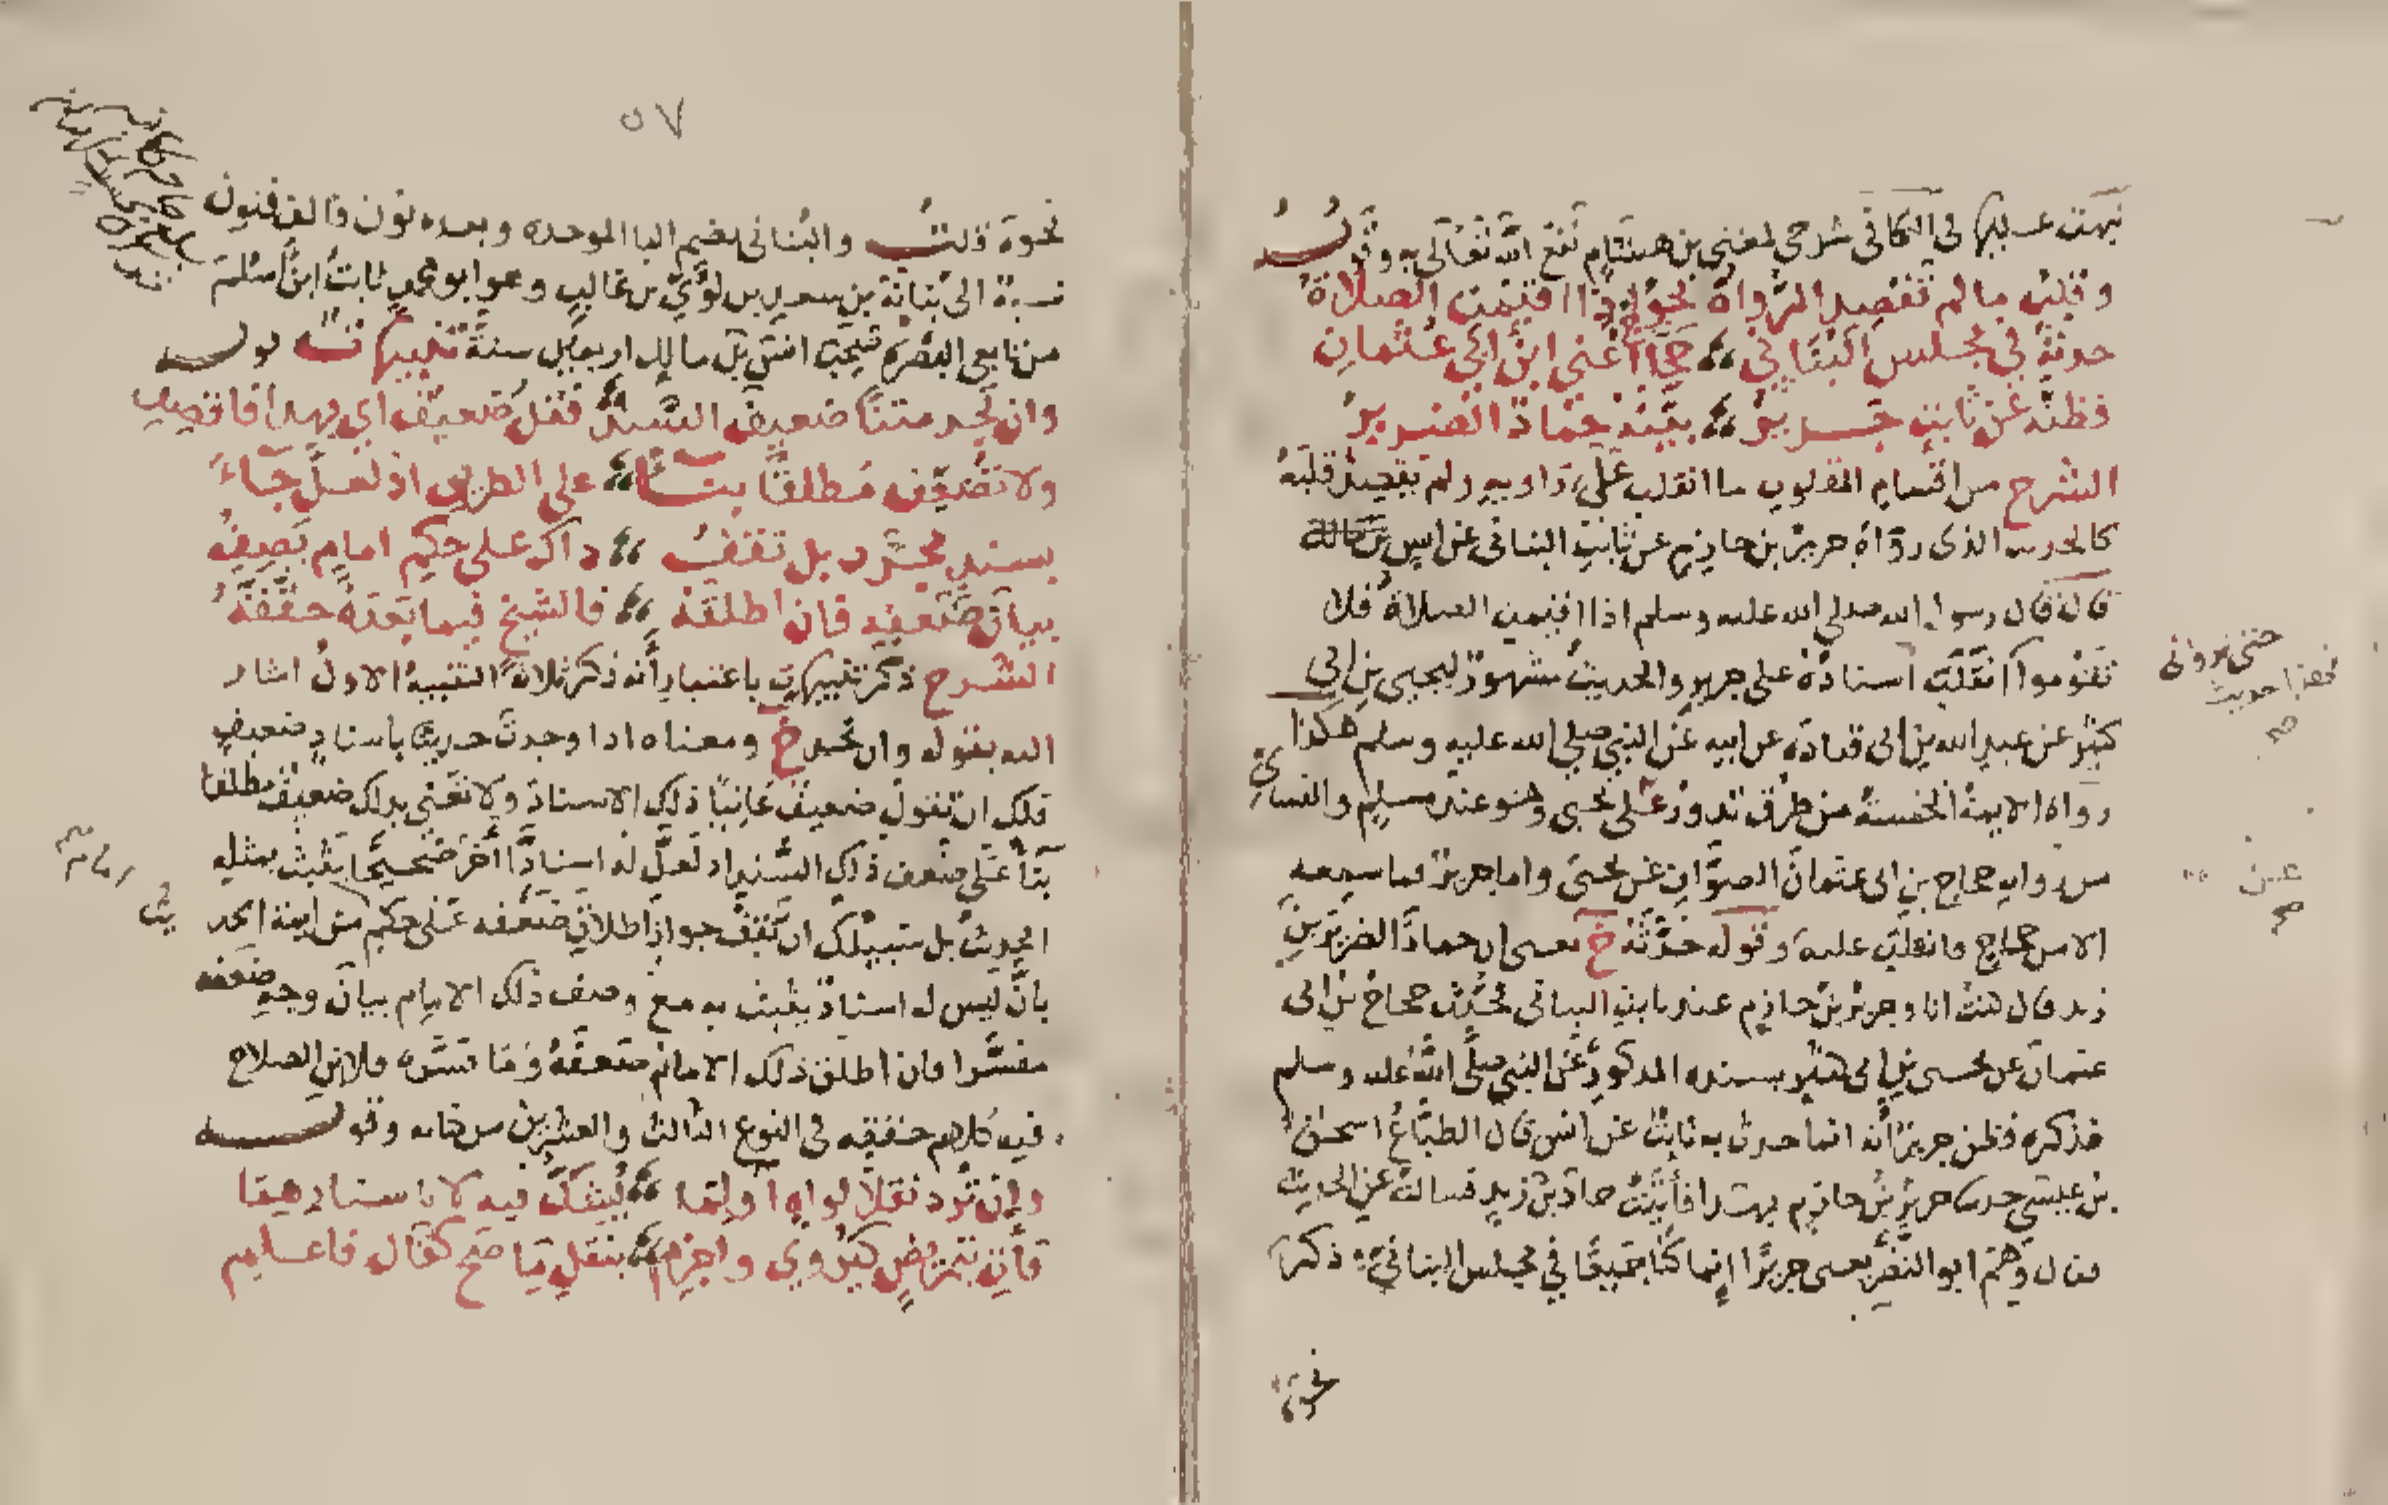 نبهت عليها في الكافي شرحي لمغني بن هشام نفع الله تعالى به وقولـــه
وقلب ما لم تقصد الرواة نحو اذا اقيمت الصلاة
حدثه في مجلس البناني حجاج اعني ابن ابي عثمان
فظنه عن ثابت جرير بينه حماد الضرير
الشرح من اقسام المقلوب ما انقلب على راويه ولم يقصد قلبه
كالحديث الذي رواه جرير بن حازم عن ثابت البناني عن انس بن مالك
قال قال رسول الله صلى الله عليه وسلم اذا اقيمت الصلاة فلا
تقوموا انقلب اسناده على جرير والحديث مشهور ليحيى بن ابي
كثير عن عبد الله بن ابي قتادة عن ابيه عن النبي صلى الله عليه وسلم هكذا
رواه الايمة الخمسة من طرق تدور على يحيى وهو عند مسلم والنسائي
من رواية حجاج بن ابي عثمان الصواف عن يحيى واما جرير فما سمعه
الا من حجاج فانقلب عليه وقوله حدثه خ يعني ان حمادا الضرير بن
زيد قال كنت انا وجرير بن حازم عند ثابت البناني فحدث حجاج بن ابي
عثمان عن يحيى بن ابي كثير بسنده المذكور عن النبي صلى الله عليه وسلم
فذكره فظن جرير انه انما حدث به ثابت عن انس قال الطباع اسحق
بن عيسى حدثنا جرير بن حازم بهذا فأتيت حماد بن زيد فسالته عن الحديث
فقال وهم ابو النضر يعني جريرا إنما كنا جميعا في مجلس البناني ذكر
نحوه
حتى تروني
صح
عن
صح
٥٧
نحوه قلت والبناني بضم البا الموحده وبعده نون فالف فنون
نسبة الى بنانة بن سعد بن لؤي بن غالب وهو ابو محمد ثابت ابن أسلم
من تابعي البصرة صحب انس بن مالك اربعين سنة تنبيهات قولـــه
وان تجد متنا ضعيف السند فقل ضعيف اي بهذا فاقصد
ولا تضعف مطلقا بتا على الطريق اذ لعل جاء
بسند مجود بل تقف ذاك على حكم امام يصف
بيان ضعفه فان اطلقه فالشيخ فيما بعده حققه
الشرح ذكر تنبيهات باعتبار أنه ذكر ثلاثة التنبيه الاول اشار
اليه بقوله وان تجد خ ومعناه اذا وجدت حديثا باسناد ضعيف
فلك ان تقول ضعيف عانيا ذلك الاسناد ولا تعني بذلك ضعيف مطلقا
بتا على ضعف ذلك السند اذ لعل له اسنادا آخر صحيحا يثبت بمثله
الحديث بل سبيلك ان تقف جواز اطلاق ضعفه على حكم من ايمة الحد
يث
بأن ليس له اسناد يثبت به مع وصف ذلك الامام بيان وجه ضعفه
مفسرا فان اطلق ذلك الامام ضعفه وما فسره فلابن الصلاح
فيه كلام حققه في النوع الثالث والعشرين من كتابه وقولـــه
وإن ترد نقلا لواه أو لما يشك فيه لا باسنادهما
فأت بتمريض كيروى واجزم بنقل ما صح كقال فاعلم